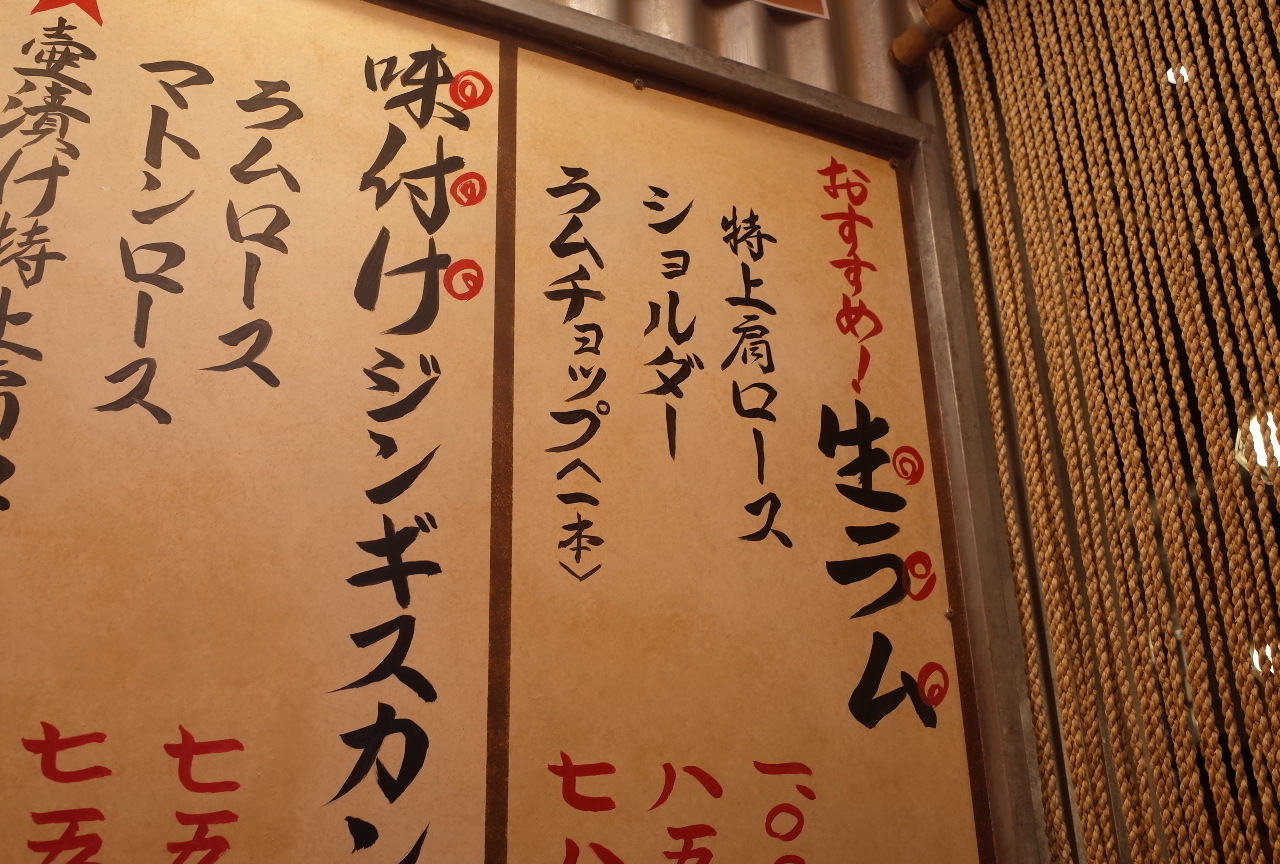 おすすめ！生ラム
特上肩ロース 一、〇
ショルダー 八五
ラムチョップ〈一本〉 七八
味付けジンギスカン
ラムロース 七五
マトンロース 七五
壺漬け特上肩